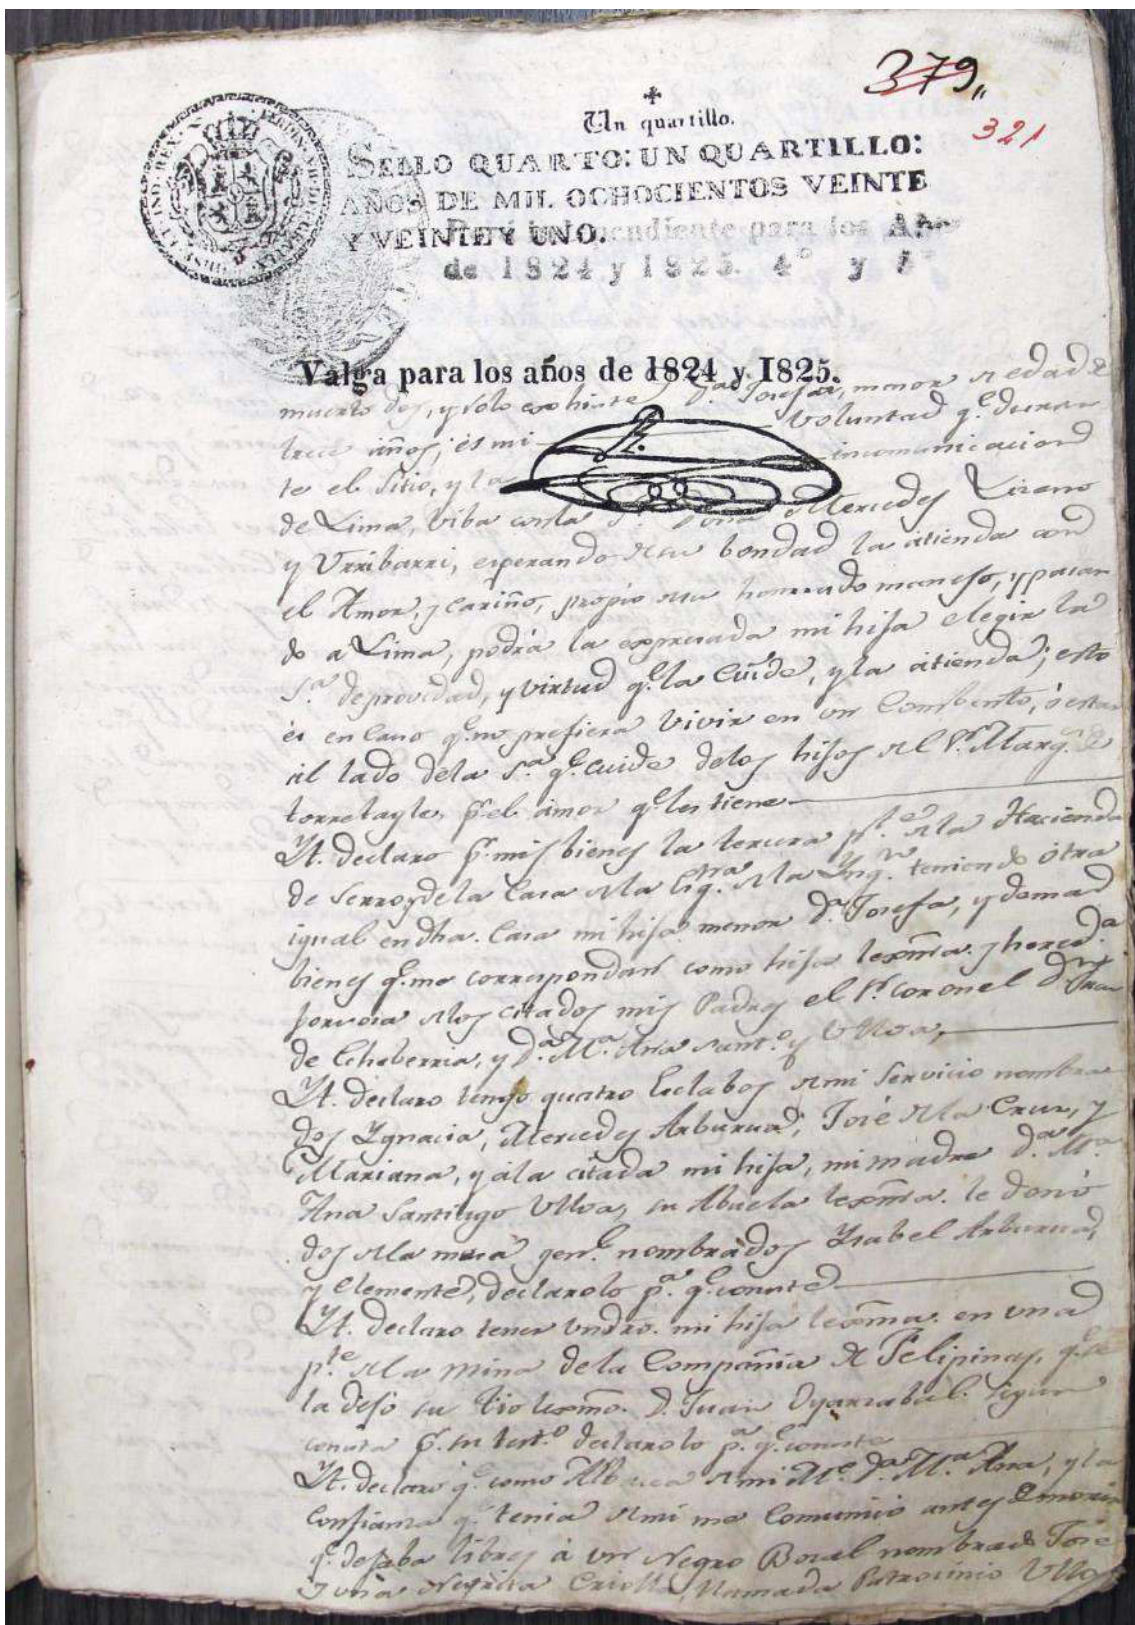 379,,
321
Un quartillo.
SELLO QUARTO: UN QUARTILLO:
AÑOS DE MIL OCHOCIENTOS VEINTE
Y VEINTE Y UNO.
pendiente para los Años
de 1824 y 1825. 4º y
Valga para los años de 1824 y 1825.
muerto dos, y solo existe Dª Josefa, menor de edad de
trece años; es mi voluntad qe. duran
te el Sitio, y la incomunicacion
de Lima, viba con la Sª Doña Mercedes Lizano
y Urribarri, esperando de su bondad la atienda con
el Amor, y Cariño, propio de su honrrado manejo, y pasan
do a Lima, podrá la expresada mi hija elegir la
Sª. de provedad, y virtud qe. la Cuide, y la atienda; esto
és en caso qe. no prefiera vivir en un Combento, ó estar
al lado de la Sª. qe. cuide de los hijos del Sr. Marqs. de
torretagle, pr. el amor qe. les tiene
Yt. declaro pr. mis bienes la tercera pte. de la Hacienda
de Serro, y de la Casa de la Esqna. de la Ynqn. teniendo otra
igual en dha. Casa mi hija menor Dª. Josefa, y demas
bienes qe. me correspondan como hija lexma. y hereda.
forzosa de los citados mis Padres el Sr. Coronel Dn. Juan
de Echeberria, y Dª. Mª. Ana Santo. y Ulloa,
Yt. declaro tengo quatro Esclabos de mi Servicio nombra
dos Ygnacia, Mercedes Arburua, José de la Cruz, y
Mariana, y á la citada mi hija, mi madre Dª. Mª.
Ana Santiago Ulloa, su Abuela lexma. le donó
dos de la misma nombrados Ysabel Arburua,
y Clemente, declarolo pª. qe. conste
Yt. declaro tener un dro. mi hija lexma. en una
pte. de la Mina de la Compañia de Felipinas, qe. se
la dejó su tio lexmo. D. Juan Oyarzabal. segun
consta pr. su testo. declarolo pª. qe. conste
Yt. declaro qe. como Albacea de mi Me. Dª. Mª. Ana, y la
Confianza qe. tenia de mi me Comunico antes de morir
qe. dejaba libres á un Negro Bozal nombrado José
y una Negrita Criolla llamada Patrocinio Ulloa